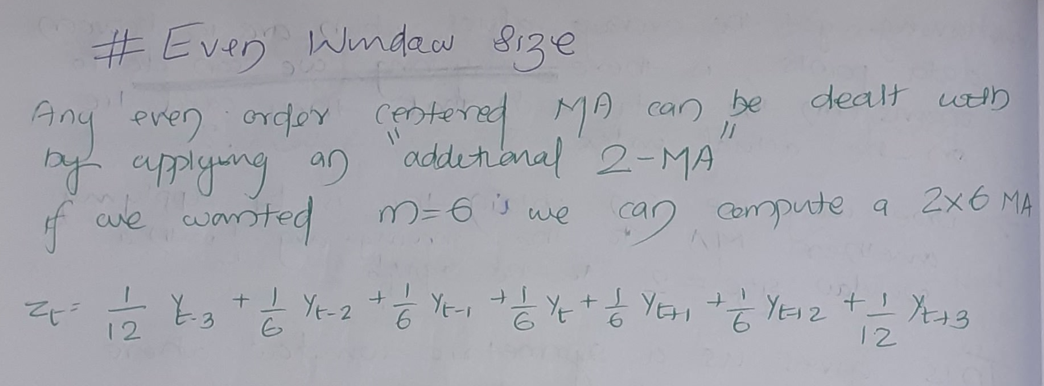 # Even Window Size
Any even order centered MA can be dealt with
by applying an "additional 2-MA"
if we wanted m=6 is we can compute a 2x6 MA
z_t = 1/12 y_t-3 + 1/6 y_t-2 + 1/6 y_t-1 + 1/6 y_t + 1/6 y_t+1 + 1/6 y_t+2 + 1/12 y_t+3